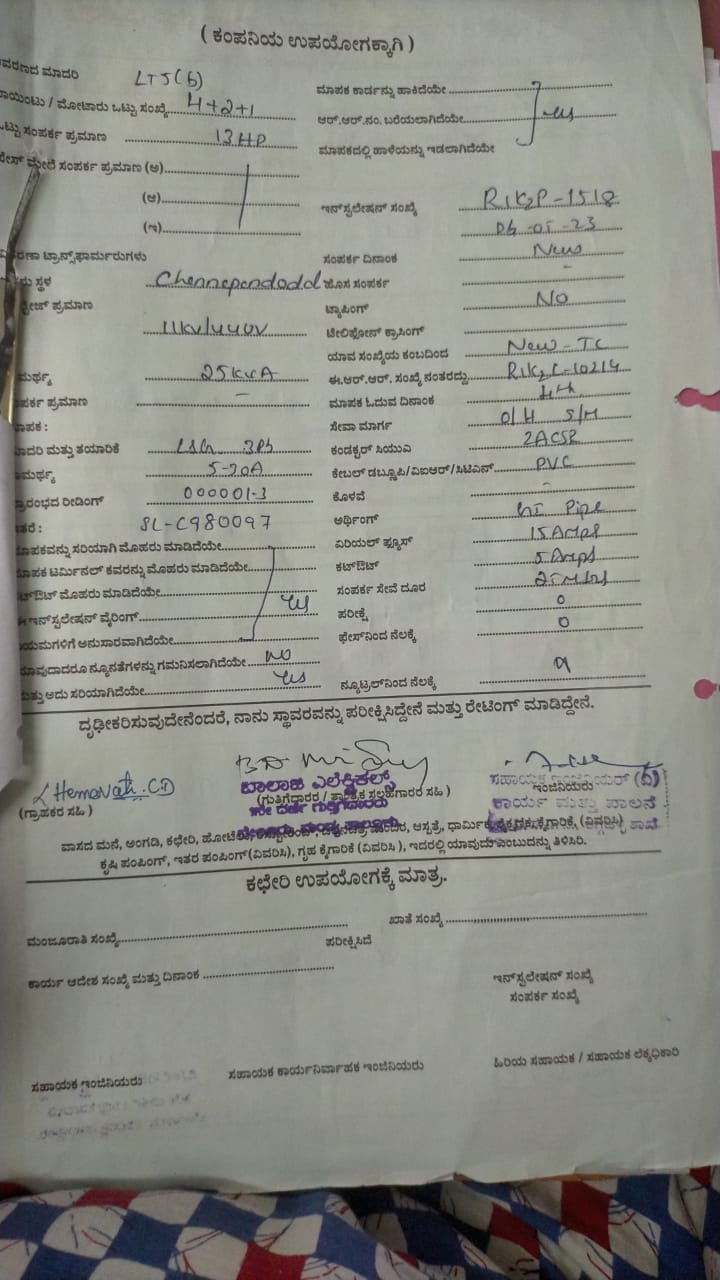 ( ಕಂಪನಿಯ ಉಪಯೋಗಕ್ಕಾಗಿ )
ವರಣದ ಮಾದರಿ LT5(b)
ಮಾಪಕ ಕಾರ್ಡನ್ನು ಹಾಕಿದೆಯೇ
ಾಯಿಂಟು / ಮೋಟಾರು ಒಟ್ಟು ಸಂಖ್ಯೆ 4+2+1
ಆರ್.ಆರ್.ನಂ. ಬರೆಯಲಾಗಿದೆಯೇ yes
ಒಟ್ಟು ಸಂಪರ್ಕ ಪ್ರಮಾಣ 13HP
ಮಾಪಕದಲ್ಲಿ ಹಾಳೆಯನ್ನು ಇಡಲಾಗಿದೆಯೇ
ಮೇಲೆ ಸಂಪರ್ಕ ಪ್ರಮಾಣ (ಅ)
(ಆ)
ಇನ್‌ಸ್ಟಲೇಷನ್ ಸಂಖ್ಯೆ R1K2P-1518
(ಇ)
06-05-23
ಟ್ರಾನ್ಸ್‌ಫಾರ್ಮರುಗಳು
ಸಂಪರ್ಕ ದಿನಾಂಕ New
ಸ್ಥಳ Chennapendoddi
ಹೊಸ ಸಂಪರ್ಕ -
ಪ್ರಮಾಣ 11KV/440V
ಟ್ಯಾಪಿಂಗ್ No
ಟೆಲಿಫೋನ್ ಕ್ರಾಸಿಂಗ್
ಯಾವ ಸಂಖ್ಯೆಯ ಕಂಬದಿಂದ New-TC
ಮರ್ಥ್ಯ 25KVA
ಈ.ಆರ್.ಆರ್. ಸಂಖ್ಯೆ ನಂತರದ್ದು
ಪರ್ಕ ಪ್ರಮಾಣ -
ಮಾಪಕ ಓದುವ ದಿನಾಂಕ
ಾಪಕ :
ಸೇವಾ ಮಾರ್ಗ O/H S/M
ಾದರಿ ಮತ್ತು ತಯಾರಿಕೆ L&G 3Ph
ಕಂಡಕ್ಟರ್ ಸಿಯುವಿ 2ACSR
ಾಮರ್ಥ್ಯ 5-20A
ಕೇಬಲ್ ಡಬ್ಲ್ಯೂಪಿ/ವಿಐಆರ್/ಸಿಟಿಎಸ್ PVC
್ರಾರಂಭದ ರೀಡಿಂಗ್ 000001-3
ಕೊಳವೆ -
ತರೆ : SL-C980097
ಅರ್ಥಿಂಗ್ GI Pipe
ಮಾಪಕವನ್ನು ಸರಿಯಾಗಿ ಮೊಹರು ಮಾಡಿದೆಯೇ
ಏರಿಯಲ್ ಫ್ಯೂಸ್ 15Amps
ಮಾಪಕ ಟರ್ಮಿನಲ್ ಕವರನ್ನು ಮೊಹರು ಮಾಡಿದೆಯೇ
ಕಟ್‌ಔಟ್ 5Amps
ಕಟ್‌ಔಟ್ ಮೊಹರು ಮಾಡಿದೆಯೇ
ಸಂಪರ್ಕ ಸೇವೆ ದೂರ
ಇನ್‌ಸ್ಟಲೇಷನ್ ವೈರಿಂಗ್ yes
ಪರೀಕ್ಷೆ 0
ಯಮಗಳಿಗೆ ಅನುಸಾರವಾಗಿದೆಯೇ
ಫೇಸ್‌ನಿಂದ ನೆಲಕ್ಕೆ 0
ಯಾವುದಾದರೂ ನ್ಯೂನತೆಗಳನ್ನು ಗಮನಿಸಲಾಗಿದೆಯೇ NO
ಮತ್ತು ಅದು ಸರಿಯಾಗಿದೆಯೇ yes
ನ್ಯೂಟ್ರಲ್‌ನಿಂದ ನೆಲಕ್ಕೆ
ದೃಢೀಕರಿಸುವುದೇನೆಂದರೆ, ನಾನು ಸ್ಥಾವರವನ್ನು ಪರೀಕ್ಷಿಸಿದ್ದೇನೆ ಮತ್ತು ರೇಟಿಂಗ್ ಮಾಡಿದ್ದೇನೆ.
Hemavati.CD
(ಗ್ರಾಹಕರ ಸಹಿ)
ಬಾಲಾಜಿ ಎಲೆಕ್ಟ್ರಿಕಲ್ಸ್
(ಗುತ್ತಿಗೆದಾರರ / ತಾಂತ್ರಿಕ ಸಲಹೆಗಾರರ ಸಹಿ )
ಸಹಾಯಕ ಇಂಜಿನಿಯರ್ (ವಿ)
ಇಂಜಿನಿಯರು
ಕಾರ್ಯ ಮತ್ತು ಪಾಲನೆ
ವಾಸದ ಮನೆ, ಅಂಗಡಿ, ಕಛೇರಿ, ಆಸ್ಪತ್ರೆ, ಧಾರ್ಮಿಕ, ಕೈಗಾರಿಕೆ, (ವಿವರಿಸಿ)
ಕೃಷಿ ಪಂಪಿಂಗ್, ಇತರ ಪಂಪಿಂಗ್(ವಿವರಿಸಿ), ಗೃಹ ಕೈಗಾರಿಕೆ (ವಿವರಿಸಿ ), ಇದರಲ್ಲಿ ಯಾವುದು ಎಂಬುದನ್ನು ತಿಳಿಸಿರಿ.
ಕಛೇರಿ ಉಪಯೋಗಕ್ಕೆ ಮಾತ್ರ.
ಮಂಜೂರಾತಿ ಸಂಖ್ಯೆ
ಖಾತೆ ಸಂಖ್ಯೆ
ಪರೀಕ್ಷಿಸಿದೆ
ಕಾರ್ಯ ಆದೇಶ ಸಂಖ್ಯೆ ಮತ್ತು ದಿನಾಂಕ
ಇನ್‌ಸ್ಟಲೇಷನ್ ಸಂಖ್ಯೆ
ಸಂಪರ್ಕ ಸಂಖ್ಯೆ
ಸಹಾಯಕ ಇಂಜಿನಿಯರು
ಸಹಾಯಕ ಕಾರ್ಯನಿರ್ವಾಹಕ ಇಂಜಿನಿಯರು
ಹಿರಿಯ ಸಹಾಯಕ / ಸಹಾಯಕ ಲೆಕ್ಕಾಧಿಕಾರಿ